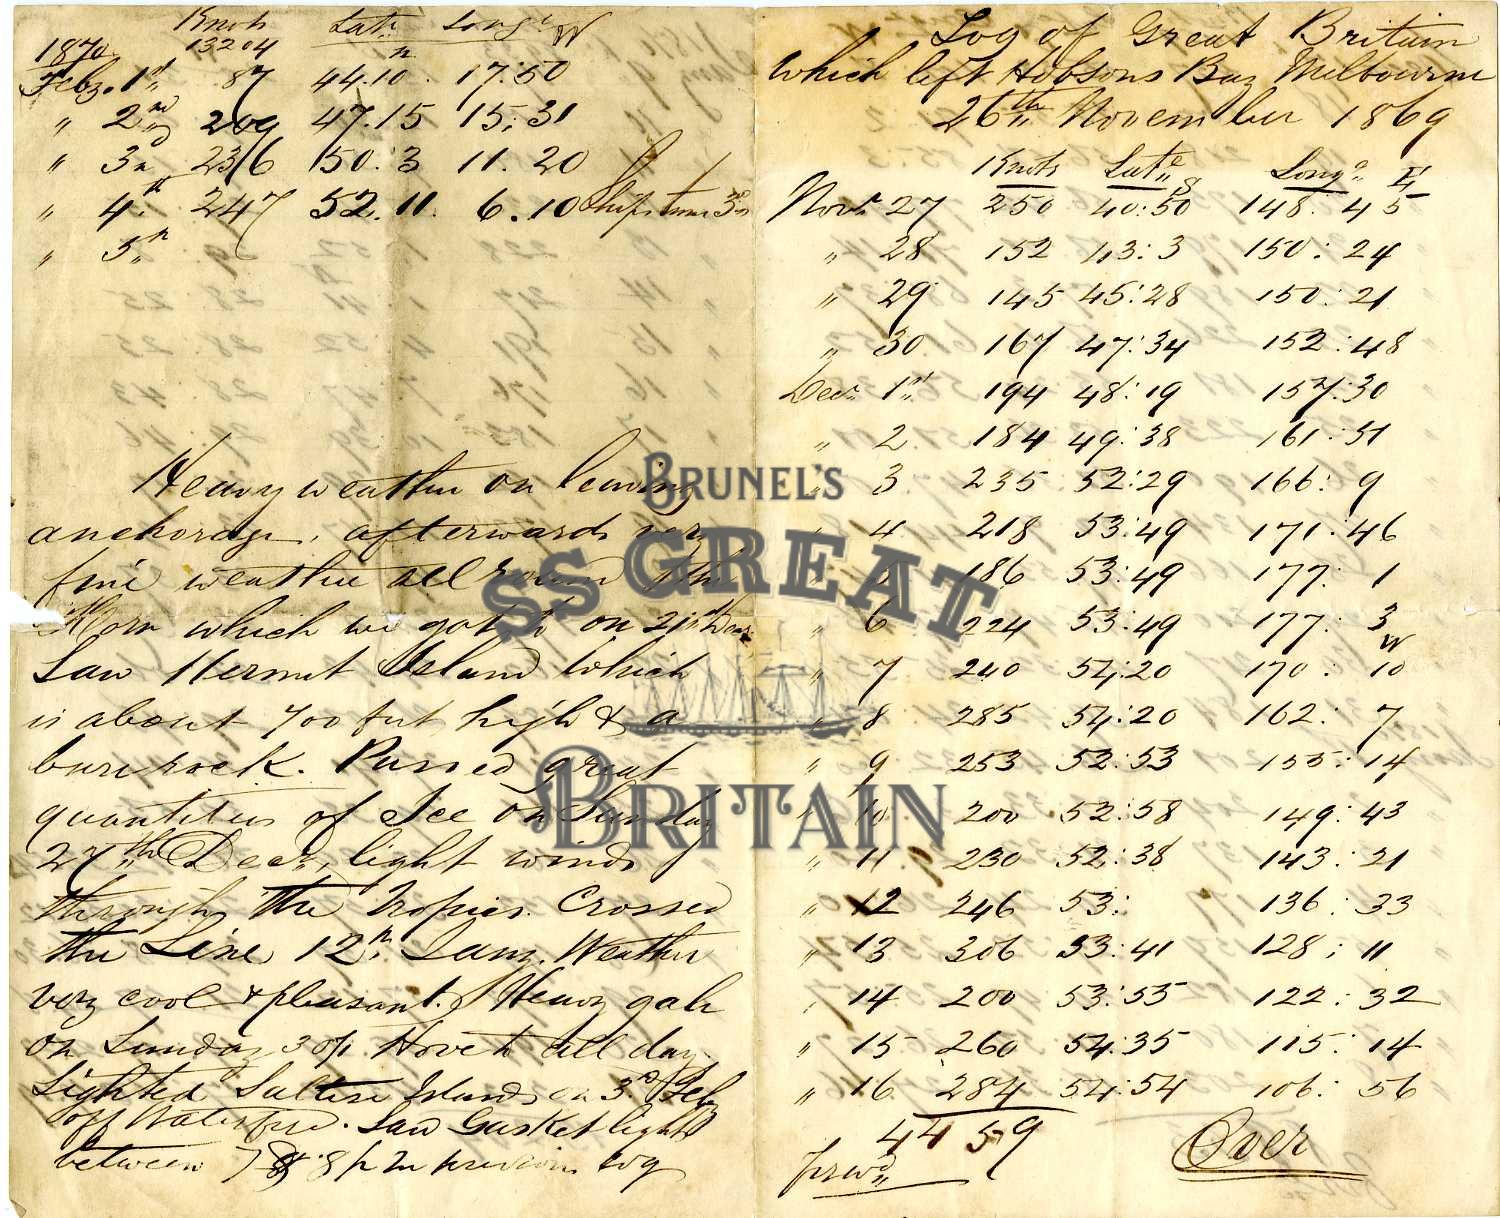 Knots Latd. Longe W
1870 13204 n
Feby. 1st 87 44.10 17:50
" 2nd 209 47.15 15:31
" 3rd 236 50:3 11.20
" 4th 247 52.11. 6.10 Ships time 3
" 5th
Heavy weather on leaving
anchorage, afterwards very
fine weather all round the
Horn which we got to on 21st Decr
Saw Hermit Island which
is about 700 feet high & a
bare rock. Passed great
quantities of Ice on Sunday
27th Decr, light winds
through the Tropics. Crossed
the Line 12th Jany. Weather
very cool & pleasant. Heavy gale
on Sunday 30th Hove to all day.
Sighted Saltese Islands on 3rd Feby
off Waterford. Saw Gasket light
between 7 & 8 p m previous
Log of Great Britain
which left Hobsons Bay Melbourne
26th November 1869
Knots Late S Longe E
Novr 27 250 40:50 148:45
" 28 152 43:3 150:24
" 29 145 45:28 150:21
" 30 167 47:34 152:48
Decr 1st 194 48:19 157:30
" 2 184 49:38 161:51
" 3 235 52:29 166:9
" 4 218 53:49 171:46
" 186 53:49 177:1
" 6 224 53:49 177:3
W
" 7 240 54:20 170:10
" 8 285 54:20 162:7
" 9 253 52:53 155:14
" 10 200 52:58 149:43
" 11 230 52:38 143:21
" 12 246 53: 136:33
" 13 306 53:41 128:11
" 14 200 53:55 122:32
" 15 260 54:35 115:14
" 16 284 54:54 106:56
4459
forwd Over
BRUNEL'S
SS GREAT
BRITAIN